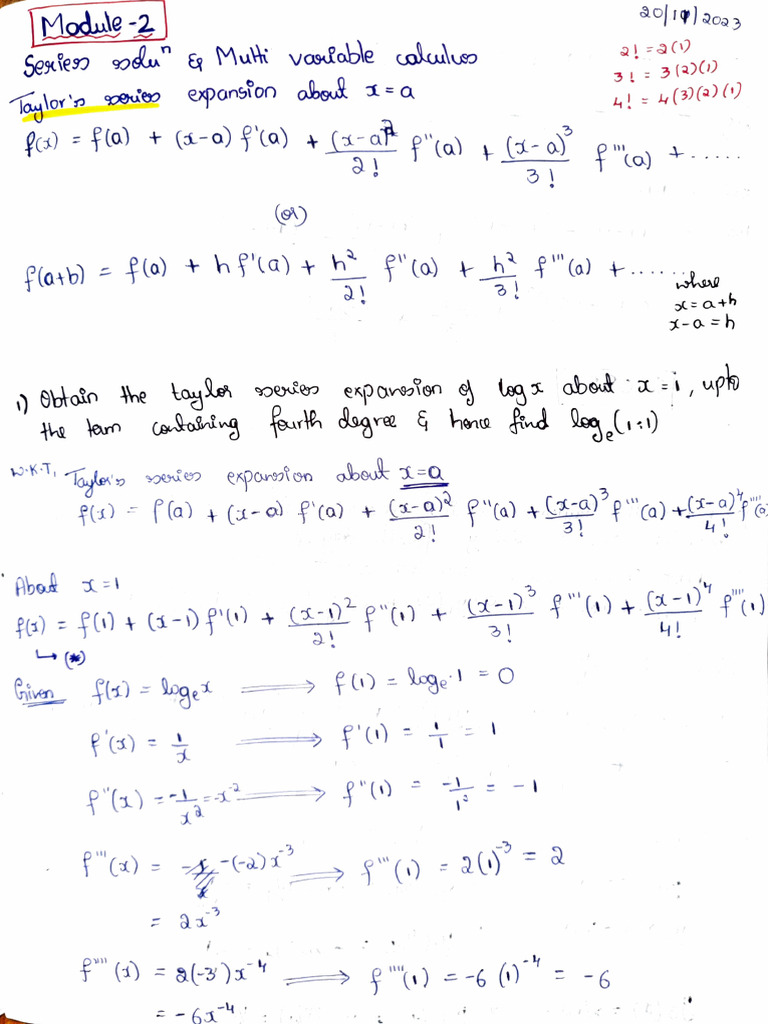 Module-2
20/11/2023
Series soluⁿ & Multi variable calculus
2! = 2(1)
3! = 3(2)(1)
4! = 4(3)(2)(1)
Taylor's series expansion about x = a
f(x) = f(a) + (x-a) f'(a) + (x-a)²/2! f''(a) + (x-a)³/3! f'''(a) + ......
(or)
f(a+b) = f(a) + h f'(a) + h²/2! f''(a) + h²/3! f'''(a) + ......
where
x = a+h
x-a = h
1) Obtain the taylor series expansion of log x about x = 1, upto
the tam containing fourth degree & hence find logₑ(1.1)
W.K.T, Taylor's series expansion about x=a
f(x) = f(a) + (x-a) f'(a) + (x-a)²/2! f''(a) + (x-a)³/3! f'''(a) + (x-a)⁴/4! f''''(a)
About x=1
f(x) = f(1) + (x-1) f'(1) + (x-1)²/2! f''(1) + (x-1)³/3! f'''(1) + (x-1)⁴/4! f''''(1)
↳ (*)
Given f(x) = logₑx ⟹ f(1) = logₑ·1 = 0
f'(x) = 1/x ⟹ f'(1) = 1/1 = 1
f''(x) = -1/x² = -x⁻² ⟹ f''(1) = -1/1² = -1
f'''(x) = -(-2)x⁻³ ⟹ f'''(1) = 2(1)⁻³ = 2
= 2x⁻³
f''''(x) = 2(-3)x⁻⁴ ⟹ f''''(1) = -6(1)⁻⁴ = -6
= -6x⁻⁴